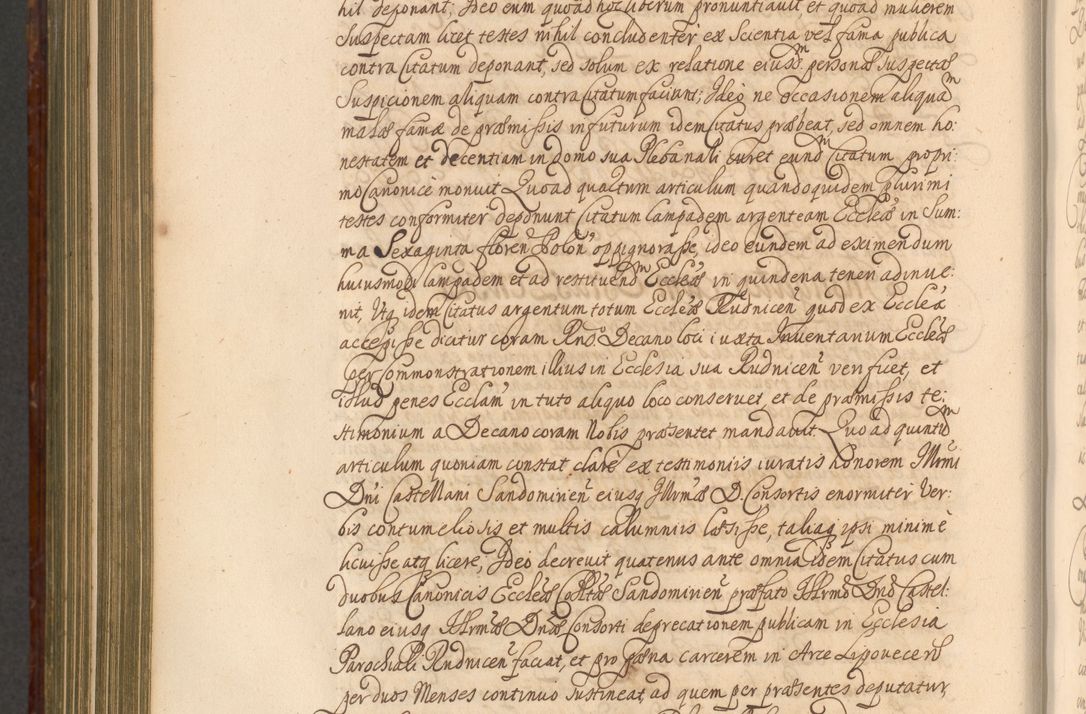 hil deponant; Ideo eum quoad hoc liberum pronuntiavit et quoad mulierem
suspectam licet testes nihil concludenter ex Scientia vel fama publica
contra Citatum deponant, sed solum ex relatione eiusdm personæ suspectæ
Suspicionem aliquam contra Citatum faciunt; Ideo ne occasionem aliquam
malæ famæ de præmissis in futurum idem Citatus præbeat, sed omnem ho:
nestatem et decentiam in domo sua Plebanali curet eundm Citatum propri:
mo Canonicè monuit Quoad quartum articulum quandoquidem plurimi
testes conformiter deponunt Citatum lampadem argenteam Ecclæ in Sum:
ma Sexaginta floren Polon oppignorasse, ideo eundem ad eximendum
huiusmodi lampadem et ad restituendm Ecclæ in quindena teneri adinve:
nit, Utq idem Citatus argentum totum Ecclæ Rudnicen quod ex Eccla
accepisse dicitur coram Rndo Decano loci iuxta Inventarium Ecclæ
per Commonstrationem illius in Ecclesia sua Rudnicen verificet, et
illud penes Ecclam in tuto aliquo loco conservet, et de præmissis te:
stimonium a Decano coram Nobis præsentet mandavit Quoad quintum
articulum quoniam constat clarè ex testimoniis iuratis honorem Illrmi
Dni Castellani Sandomirien eiusq Illrmæ D. Consortis enormiter Ver:
bis contumeliosis et multis calumniis læsisse, taliaq ipsi minimè
licuisse atq licere, Ideo decrevit quatenus ante omnia idem Citatus cum
duobus Canonicis Ecclæ Collttæ Sandomirien præfato Illrmo Dno Castel:
lano eiusq Illrmæ Dnæ Consorti deprecationem publicam in Ecclesia
Parochiali Rudnicen faciat, et pro pæna carcerem in Arce Lipovecen
per duos Menses continuo sustineat, ad quem per præsentes deputatur,